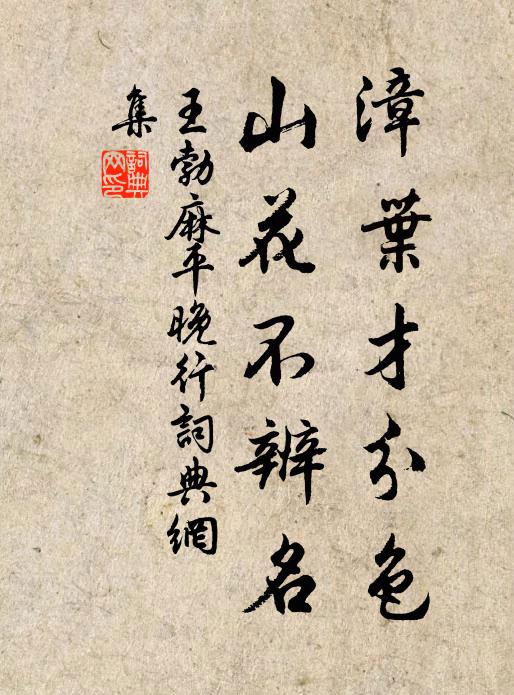 漳葉才分色
山花不辨名
王勃麻平晚行詞典網
集
詞典
网印